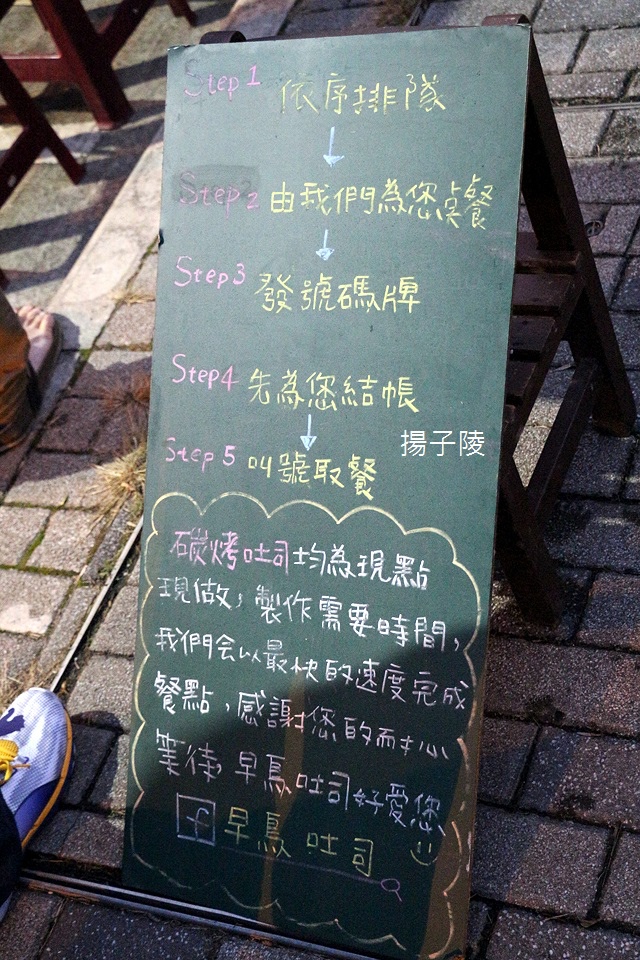 Step 1 依序排隊
Step 2 由我們為您點餐
Step 3 發號碼牌
Step4 先為您結帳
揚子陵
Step 5 叫號取餐
碳烤吐司均為現點
現做，製作需要時間，
我們会以最快的速度完成
餐點，感謝您的耐心
等待，早鳥吐司好愛您
f 早鳥吐司